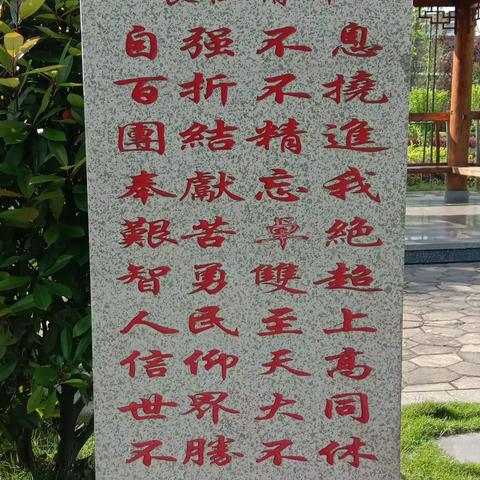 自强不息
百折不撓
團結精進
奉獻忘我
艱苦卓絕
智勇雙超
人民至上
信仰天高
世界大同
不勝不休